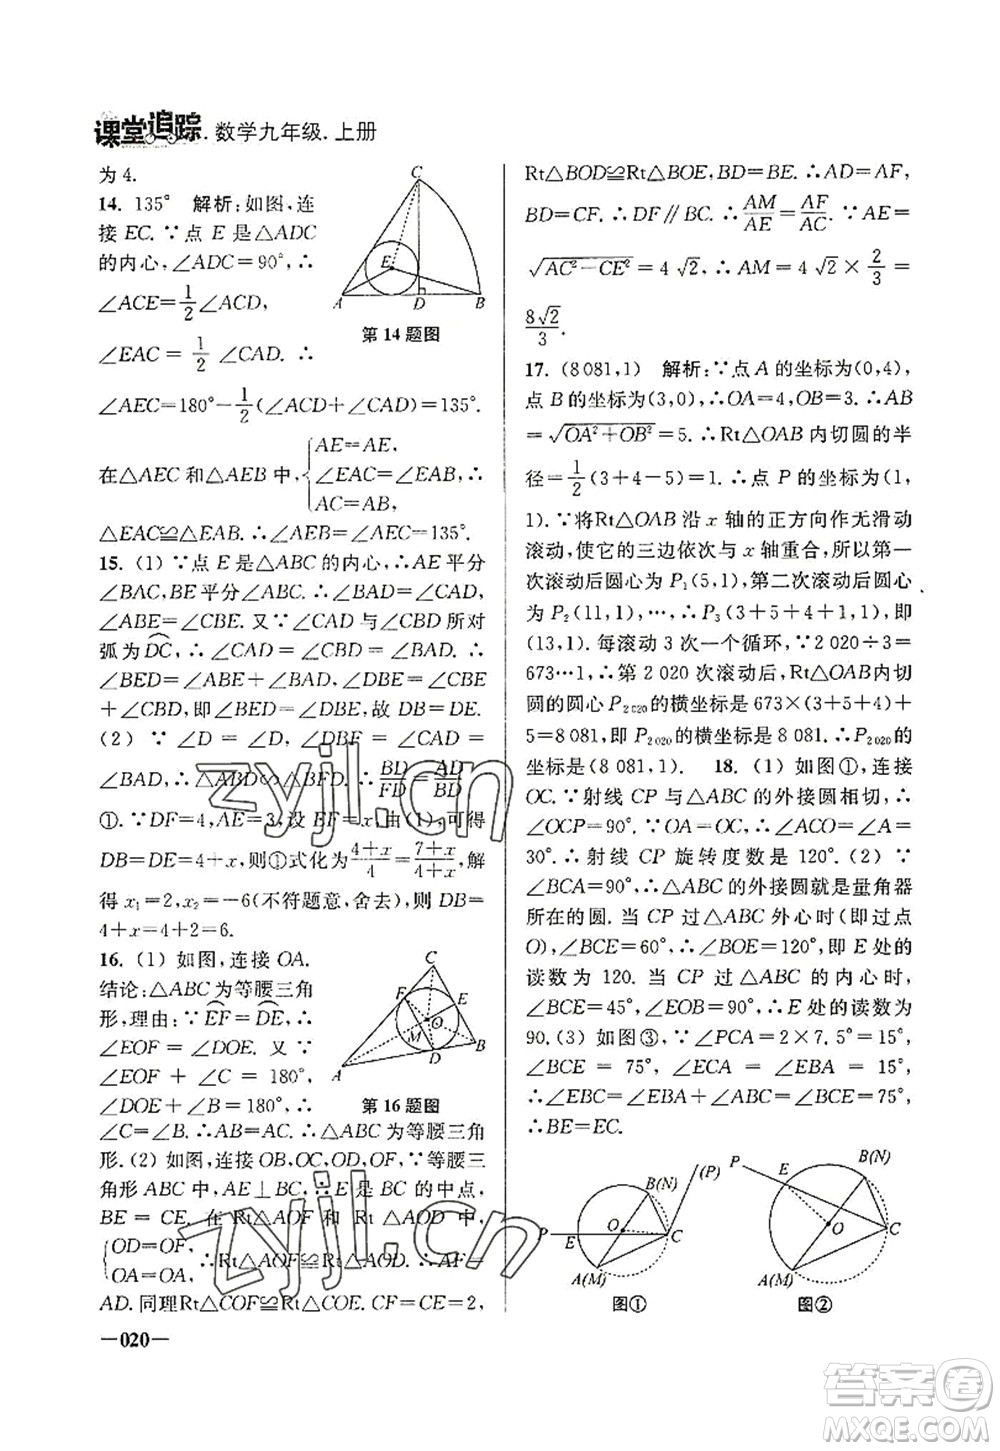 课堂追踪.数学九年级.上册
为 4.
14. 135° 解析:如图,连
接 EC. ∵点 E 是△ADC
的内心,∠ADC=90°,∴
∠ACE=1/2∠ADC,
∠EAC = 1/2 ∠CAD. ∴
∠AEC=180°-1/2(∠ACD+∠CAD)=135°.
在△AEC 和△AEB 中, { AE=AE,
∠EAC=∠EAB,
AC=AB,
△EAC≌△EAB. ∴∠AEB=∠AEC=135°.
C
E
A
D
B
第 14 题图
15. (1) ∵点 E 是△ABC 的内心,∴AE 平分
∠BAC,BE 平分∠ABC. ∴∠BAD=∠CAD,
∠ABE=∠CBE. 又∵∠CAD 与∠CBD 所对
弧为DC,∴ ∠CAD = ∠CBD = ∠BAD. ∴
∠BED=∠ABE+∠BAD,∠DBE=∠CBE
+∠CBD,即∠BED=∠DBE,故 DB=DE.
(2) ∵ ∠D = ∠D, ∠DBE = ∠CAD =
∠BAD,∴△ABD∽△BFD,∴ BD/FD = AD/BD
①. ∵DF=4,AE=3,设 EF=x,由(1)可得
DB=DE=4+x,则①式化为 (4+x)/4 = (7+x)/(4+x),解
得 x₁=2,x₂=-6(不符题意,舍去),则 DE=
4+x=4+2=6.
16. (1) 如图,连接 OA.
结论:△ABC 为等腰三角
形,理由:∵EF=DE,∴
∠EOF = ∠DOE. 又 ∵
∠EOF + ∠C = 180°,
∠DOE+∠B=180°,∴
∠C=∠B. ∴AB=AC. ∴△ABC 为等腰三角
形.(2) 如图,连接 OB,OC,OD,OF,∵等腰三
角形 ABC 中,AE⊥BC,∴E 是 BC 的中点,
BE = CE. 在 Rt△AOF 和 Rt △AOD 中,
{ OD=OF,
OA=OA, ∴Rt△AOF≌Rt△AOD. ∴AF=
AD. 同理Rt△COF≌Rt△COE. CF=CE=2,
C
F
E
O
M
B
D
A
第 16 题图
—020—
Rt△BOD≌Rt△BOE,BD=BE. ∴AD=AF,
BD=CF. ∴DF∥BC. ∴ AM/AE = AF/AC. ∵AE=
√(AC²-CE²)=4√2,∴AM=4√2×2/3=
8√2/3.
17. (8 081,1) 解析:∵点 A 的坐标为(0,4),
点 B 的坐标为(3,0),∴OA=4,OB=3. ∴AB
=√(OA²+OB²)=5. ∴Rt△OAB 内切圆的半
径=1/2(3+4-5)=1. ∴点 P 的坐标为(1,
1). ∵将Rt△OAB 沿 x 轴的正方向作无滑动
滚动,使它的三边依次与 x 轴重合,所以第一
次滚动后圆心为 P₁(5,1),第二次滚动后圆心
为 P₂(11,1),…,∴P₃(3+5+4+1,1),即
(13,1). 每滚动 3 次一个循环,∵2 020÷3=
673…1,∴第 2 020 次滚动后,Rt△OAB 内切
圆的圆心 P₂₀₂₀的横坐标是 673×(3+5+4)+
5=8 081,即 P₂₀₂₀的横坐标是 8 081. ∴P₂₀₂₀的
坐标是(8 081,1). 18. (1) 如图①,连接
OC. ∵射线 CP 与△ABC 的外接圆相切,∴
∠OCP=90°. ∵OA=OC,∴∠ACO=∠A=
30°. ∴射线 CP 旋转度数是 120°.(2) ∵
∠BCA=90°,∴△ABC 的外接圆是量角器
所在的圆. 当 CP 过△ABC 外心时(即过点
O),∠BCE=60°,∴∠BOE=120°,即 E 处的
读数为 120. 当 CP 过△ABC 的内心时,
∠BCE=45°,∠EOB=90°,∴E 处的读数为
90.(3) 如图③,∵∠PCA=2×7.5°=15°,
∠BCE = 75°, ∠ECA = ∠EBA = 15°. ∴
∠EBC=∠EBA+∠ABC=∠BCE=75°,
∴BE=EC.
B(N)
(P)
O
P
E
C
A(M)
图①
P
B(N)
E
O
C
A(M)
图②
zyjl.cn
zyjl.cn
答案圈
MXQE.COM